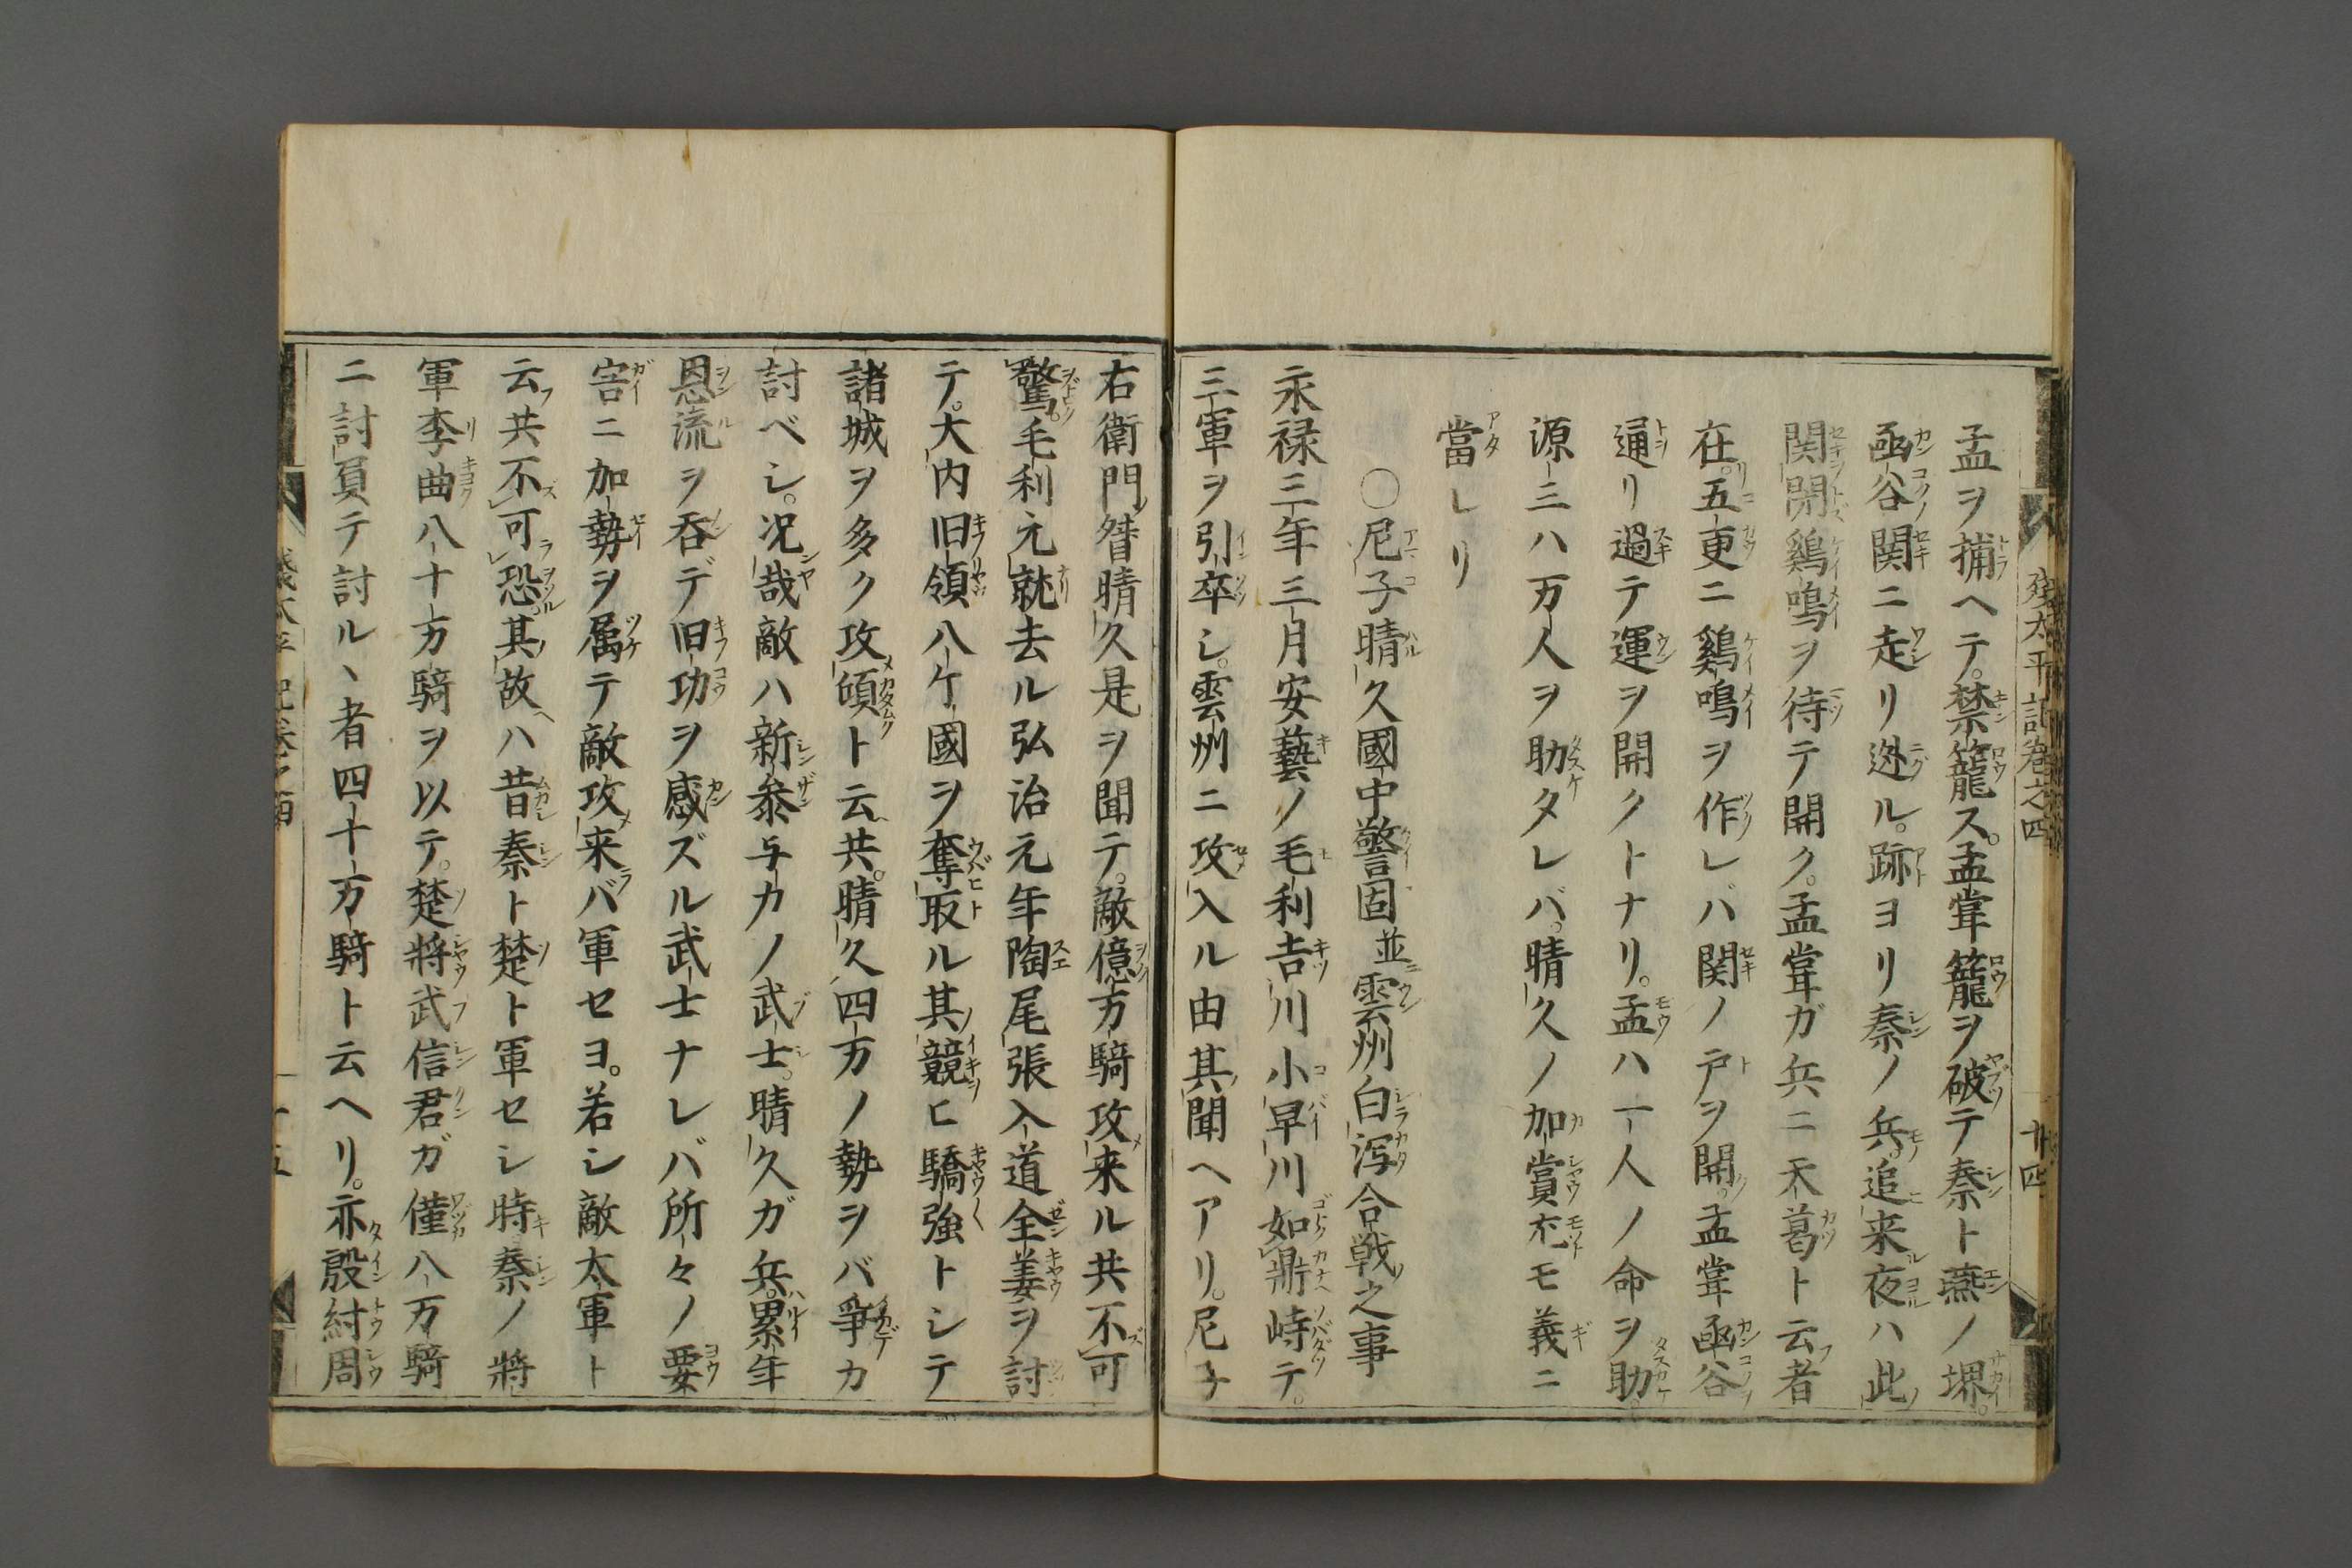 残太平記巻之四 廿四
孟ヲ捕ヘテ。禁籠ス。孟甞籠ヲ破テ秦ト燕ノ堺。
函谷関ニ走リ迯ル。跡ヨリ秦ノ兵。追来夜ハ此
関閉鷄鳴ヲ待テ開ク。孟甞ガ兵ニ禾葛ト云者
在。五更ニ鷄鳴ヲ作レバ関ノ戸ヲ開。孟甞函谷
通リ過テ運ヲ開クトナリ。孟ハ一人ノ命ヲ助。
源三ハ万人ヲ助タレバ。晴久ノ加賞尤モ義ニ
當レリ
○尼子晴久國中警固並雲州白潟合戦之事
永禄三年三月安藝ノ毛利吉川小早川如鼎峙テ。
三軍ヲ引卒シ。雲州ニ攻入ル由其聞ヘアリ。尼子
右衛門督晴久是ヲ聞テ。敵億万騎攻来ル共不可
驚。毛利元就去ル弘治元年陶尾張入道全姜ヲ討
テ。大内旧領八ケ國ヲ奪取ル其競ヒ驕強トシテ
諸城ヲ多ク攻傾ト云共。晴久四万ノ勢ヲバ爭カ
討ベシ。况哉敵ハ新参与力ノ武士。晴久ガ兵。累年
恩流ヲ呑デ旧功ヲ感ズル武士ナレバ所々ノ要
害ニ加勢ヲ属テ敵攻来バ軍セヨ。若シ敵太軍ト
云共不可恐。其故ハ昔秦ト楚ト軍セシ時秦ノ將
軍李曲八十万騎ヲ以テ。楚將武信君ガ僅八万騎
ニ討負テ討ルヽ者四十万騎ト云ヘリ。亦殷紂周